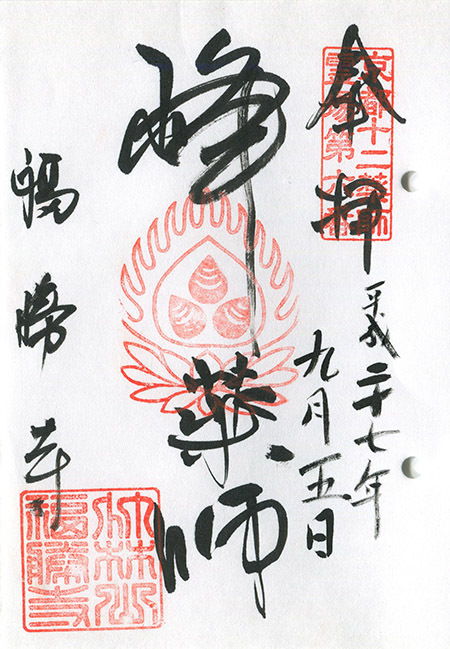 奉拝
京都十二薬師
霊場第六番
平成二十七年
九月五日
峰薬師
福勝寺
竹林山
福勝寺